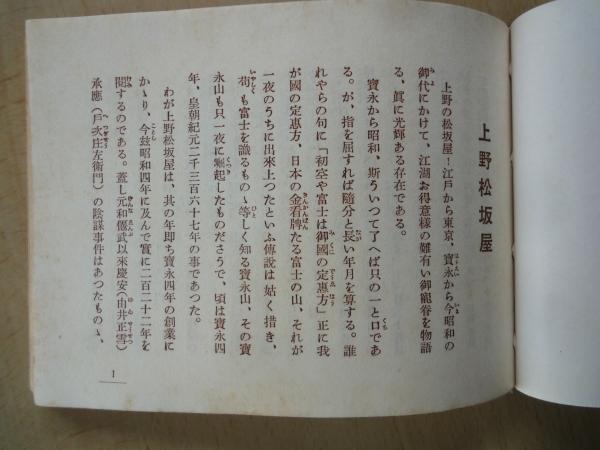 上野松坂屋
上野の松坂屋！江戸から東京、寶永から今昭和の
御代にかけて、江湖お得意様の難有い御寵眷を物語
る、眞に光輝ある存在である。
寶永から昭和、斯ういつて了へば只の一と口であ
る。が、指を屈すれば隨分と長い年月を算する。誰
れやらの句に「初空や富士は御國の定惠方」正に我
が國の定惠方、日本の金看牌たる富士の山、それが
一夜のうちに出來上つたといふ傳說は姑く措き、
苟も富士を識るものゝ等しく知る寶永山、その寶
永山も只一夜に崛起したものださうで、頃は寶永四
年、皇朝紀元二千三百六十七年の事であつた。
わが上野松坂屋は、其の年即ち寶永四年の創業に
かゝり、今玆昭和四年に及んで實に二百二十二年を
閲するのである。蓋し元和偃武以來慶安（由井正雪）
承應（戶次庄左衞門）の陰謀事件はあつたものゝ、
1